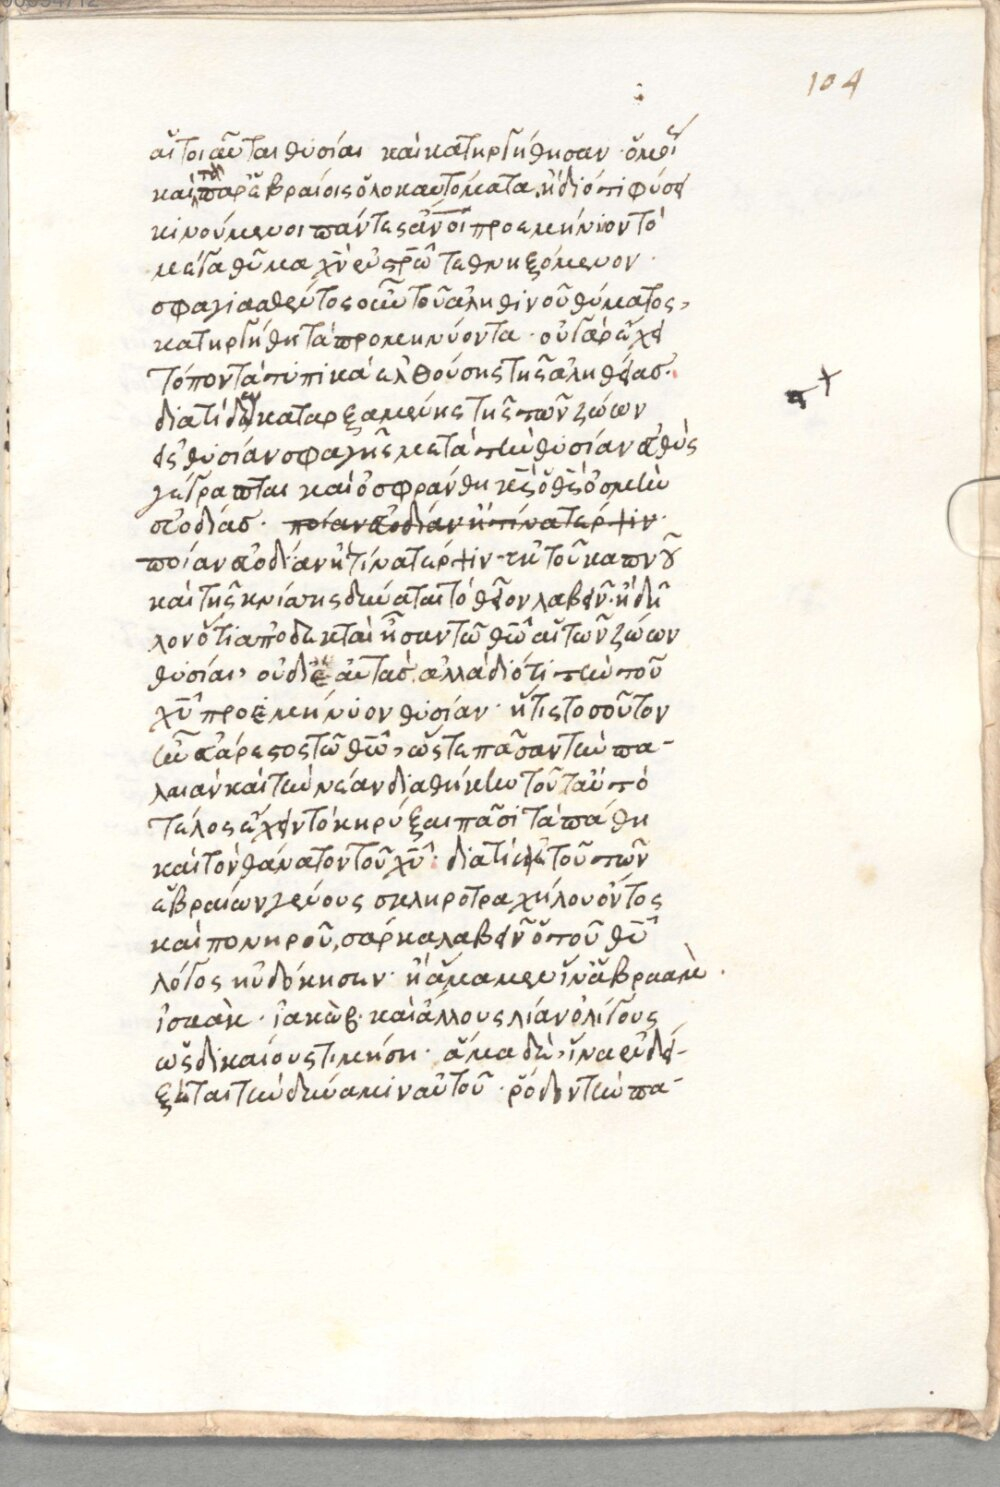 104
αἱ τοιαῦται θυσίαι καὶ κατηργήθησαν· ὁμοῦ
καὶ τὰ παρ' ἑβραίοις ὁλοκαυτώματα. ἢ διότι φύσει
κινούμενοι πάντες ἄνοι προεμήνυον τὸ
μέγα θῦμα χν ἐν στρῶ τεθνηξόμενον·
σφαγιασθέντος οὖν τοῦ ἀληθινοῦ θύματος,
κατηργήθη τὰ προμηνύοντα· οὐ γὰρ ἔχει
τόπον τὰ τυπικὰ ἐλθούσης τῆς ἀληθείας.
διατί δὲ καταρξαμένης τῆς τῶν ζώων
εἰς θυσίαν σφαγῆς μετὰ τὴν θυσίαν εὐθὺς
γέγραπται καὶ ὀσφράνθη κς ὁ θς ὀσμὴν
εὐωδίας· ποίαν εὐωδίαν ἢ τίνα τέρψιν·
ποίαν εὐωδίαν ἢ τίνα τέρψιν ἐκ τοῦ καπνοῦ
καὶ τῆς κνίσσης δύναται τὸ θεῖον λαβεῖν· ἢ δῆ
λον ὅτι ἀποδεκταὶ ἦσαν τῷ θῶ αἱ τῶν ζώων
θυσίαι, οὐ δι' αὐτὰς ἀλλὰ διότι τὴν τοῦ
χυ προεμήνυον θυσίαν· ἥτις τοσοῦτον
ἦν εὐάρεστος τῷ θῶ, ὥστε πᾶσαν τὴν πα-
λαιὰν καὶ τὴν νέαν διαθήκην τοῦτ' αὐτὸ
τέλος ἔχειν τὸ κηρύξαι πᾶσι τὰ πάθη
καὶ τὸν θάνατον τοῦ χυ· διατί ἐκ τοῦ τῶν
ἑβραίων γένους σκληροτραχήλου ὄντος
καὶ πονηροῦ, σάρκα λαβεῖν ὁ τοῦ θυ
λόγος ηὐδόκησεν· ἢ ἅμα μὲν ἵν' ἀβραὰμ·
ἰσαὰκ· ἰακὼβ· καὶ ἄλλους λίαν ὀλίγους
ὡς δικαίους τιμήσῃ· ἅμα δὲ, ἵνα ἐνδεί-
ξηται τὴν δύναμιν αὐτοῦ· ῥόδον τὴν πα-